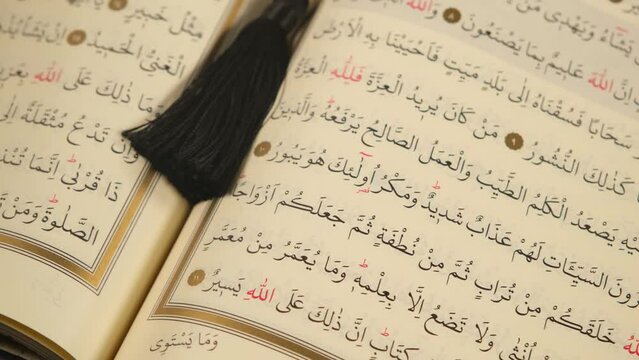 وَيَهْدِى مَنْ
اللّٰهَ عَلِيمٌ بِمَا يَصْنَعُونَ ٨ وَاللّٰهُ
سَحَابًا فَسُقْنَاهُ اِلٰى بَلَدٍ مَيِّتٍ فَاَحْيَيْنَا بِهِ الْاَرْضَ
كَذٰلِكَ النُّشُورُ ٩ مَنْ كَانَ يُرِيدُ الْعِزَّةَ فَلِلّٰهِ الْعِزَّةُ
يَصْعَدُ الْكَلِمُ الطَّيِّبُ وَالْعَمَلُ الصَّالِحُ يَرْفَعُهُ وَالَّذِينَ
السَّيِّـَٔاتِ لَهُمْ عَذَابٌ شَدِيدٌ وَمَكْرُ اُولٰٓئِكَ هُوَ يَبُورُ ١٠
خَلَقَكُمْ مِنْ تُرَابٍ ثُمَّ مِنْ نُطْفَةٍ ثُمَّ جَعَلَكُمْ اَزْوَاجًا
اُنْثٰى وَلَا تَضَعُ اِلَّا بِعِلْمِهِ وَمَا يُعَمَّرُ مِنْ مُعَمَّرٍ
كِتَابٍ اِنَّ ذٰلِكَ عَلَى اللّٰهِ يَسِيرٌ ١١
وَمَا يَسْتَوِى
مِثْلُ خَبِيرٍ
الْغَنِىُّ الْحَمِيدُ اِنْ يَشَأْ
وَمَا ذٰلِكَ عَلَى اللّٰهِ
وَاِنْ تَدْعُ مُثْقَلَةٌ
ذَا قُرْبٰى اِنَّمَا
الصَّلٰوةَ وَمَنْ